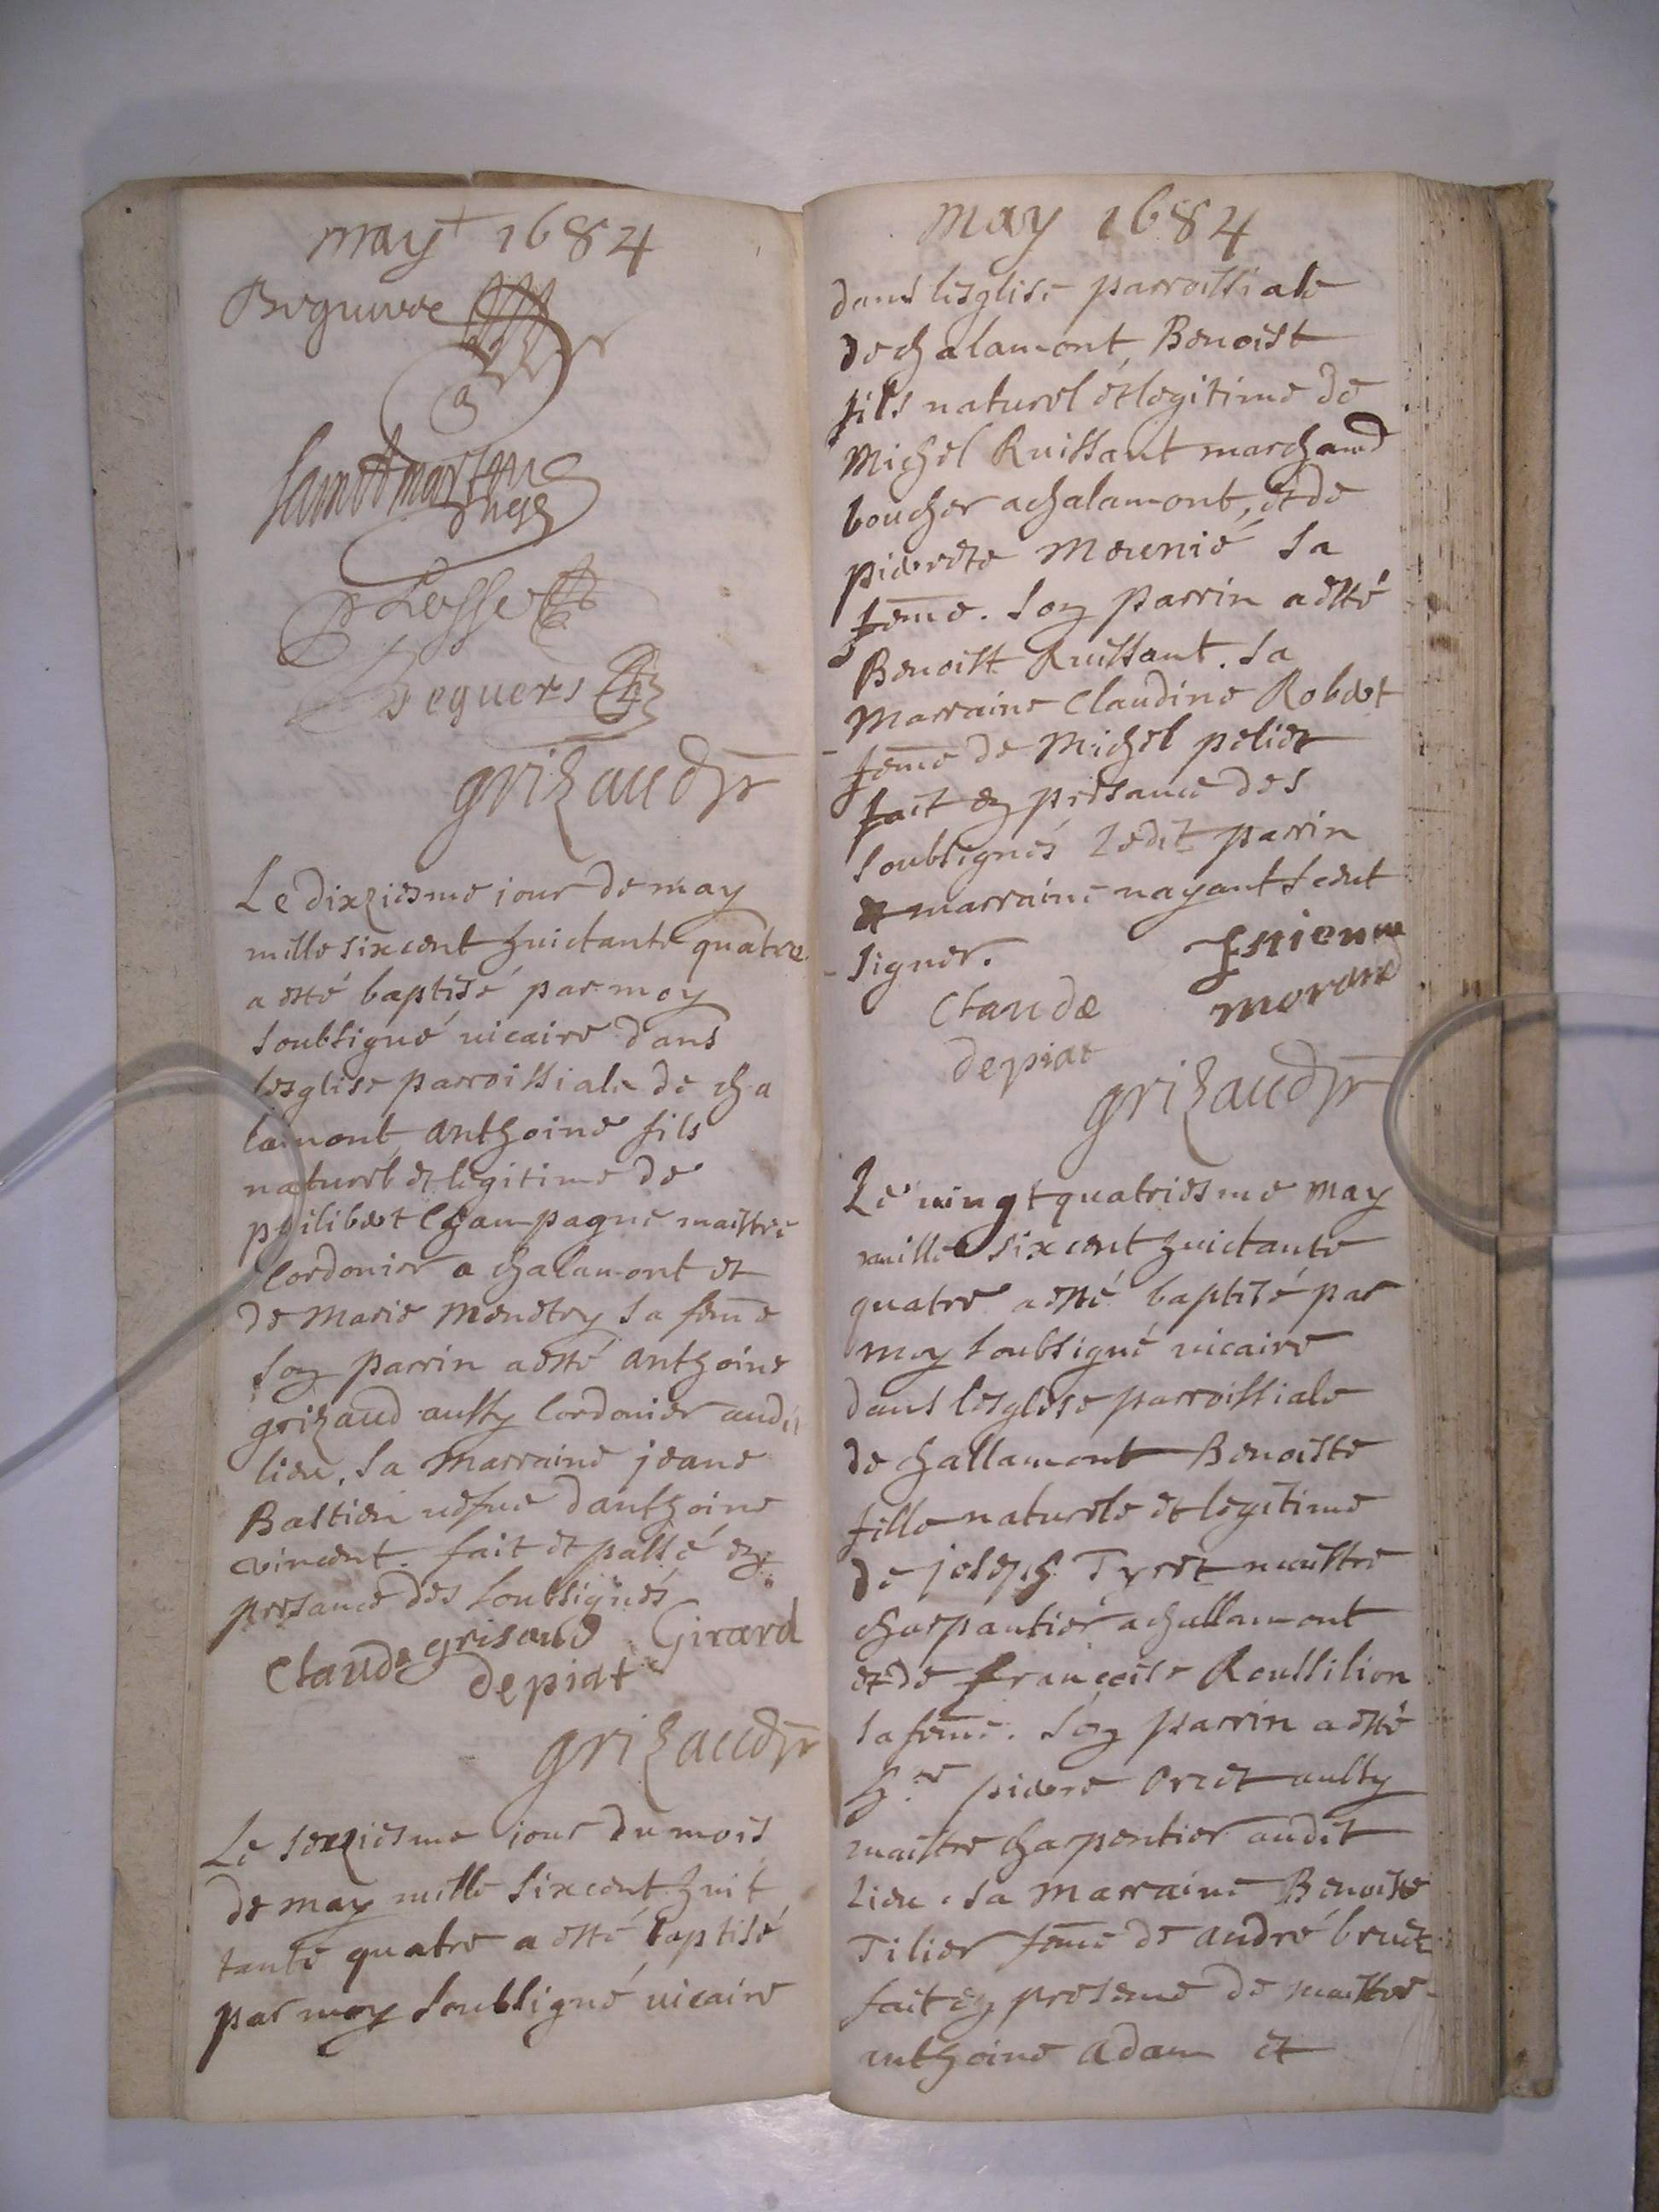 may 1684
Beguivoe
Lesse
Deguers
grizaud vr
Le dixziesme jour de may
mille six cent huictante quatre
a esté baptisé par moy
soubsigné vicaire dans
lesglise parroissiale de cha
lamont, anthoine fils
naturel et legitime de
philibert Champagne maistre
Cordonier a chalamont et
de Marie Menetry sa fem̄e
son parrin a esté anthoine
grizaud aussy Cordonier aud.
lieu. sa Marraine jeane
Bastien vefve danthoine
vincent. fait et passé en
presance des soubsignés
Claude grisaud Girard
depiat
grizaud vr
Le sexziesme jour du mois
de may mille six cent huit
tante quatre a esté baptisé
par moy soubsigné vicaire
May 1684
dans lesglise parroissiale
de chalamont, Benoist
fils naturel et legitime de
Michel Ruissant marchand
boucher a chalamont, et de
pierrete Meunié sa
fem̄e. son parrin a esté
Benoist Ruissant. sa
Marraine Claudine Robert
fem̄e de Michel peliet
fait en presance des
soubsignés ledit parrin
et marraine nayant sceut
signer.
Estienne
morard
Claude
depiat
grizaud vr
Le vingt quatriesme may
mille six cent huictante
quatre a esté baptisé par
moy soubsigné vicaire
dans lesglise parroissiale
de challamont Benoiste
fille naturele et legitime
de joseph Tyret maistre
charpantier a challamont
et de françoise Roussilion
sa fem̄e. son parrin a esté
h.re pierre Oriet aussy
maistre charpentier audit
lieu. sa Marraine Benoiste
Tilier fem̄e de andré bruet
fait en presence de maistre
anthoine adam et